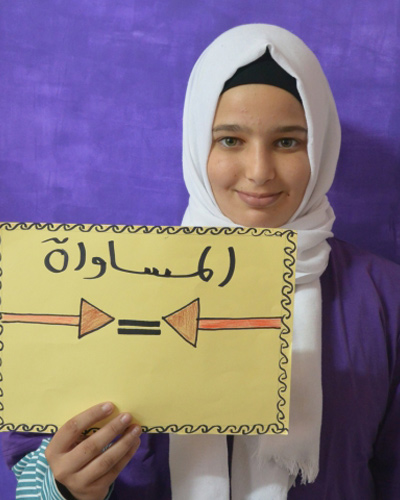 المساواة
=